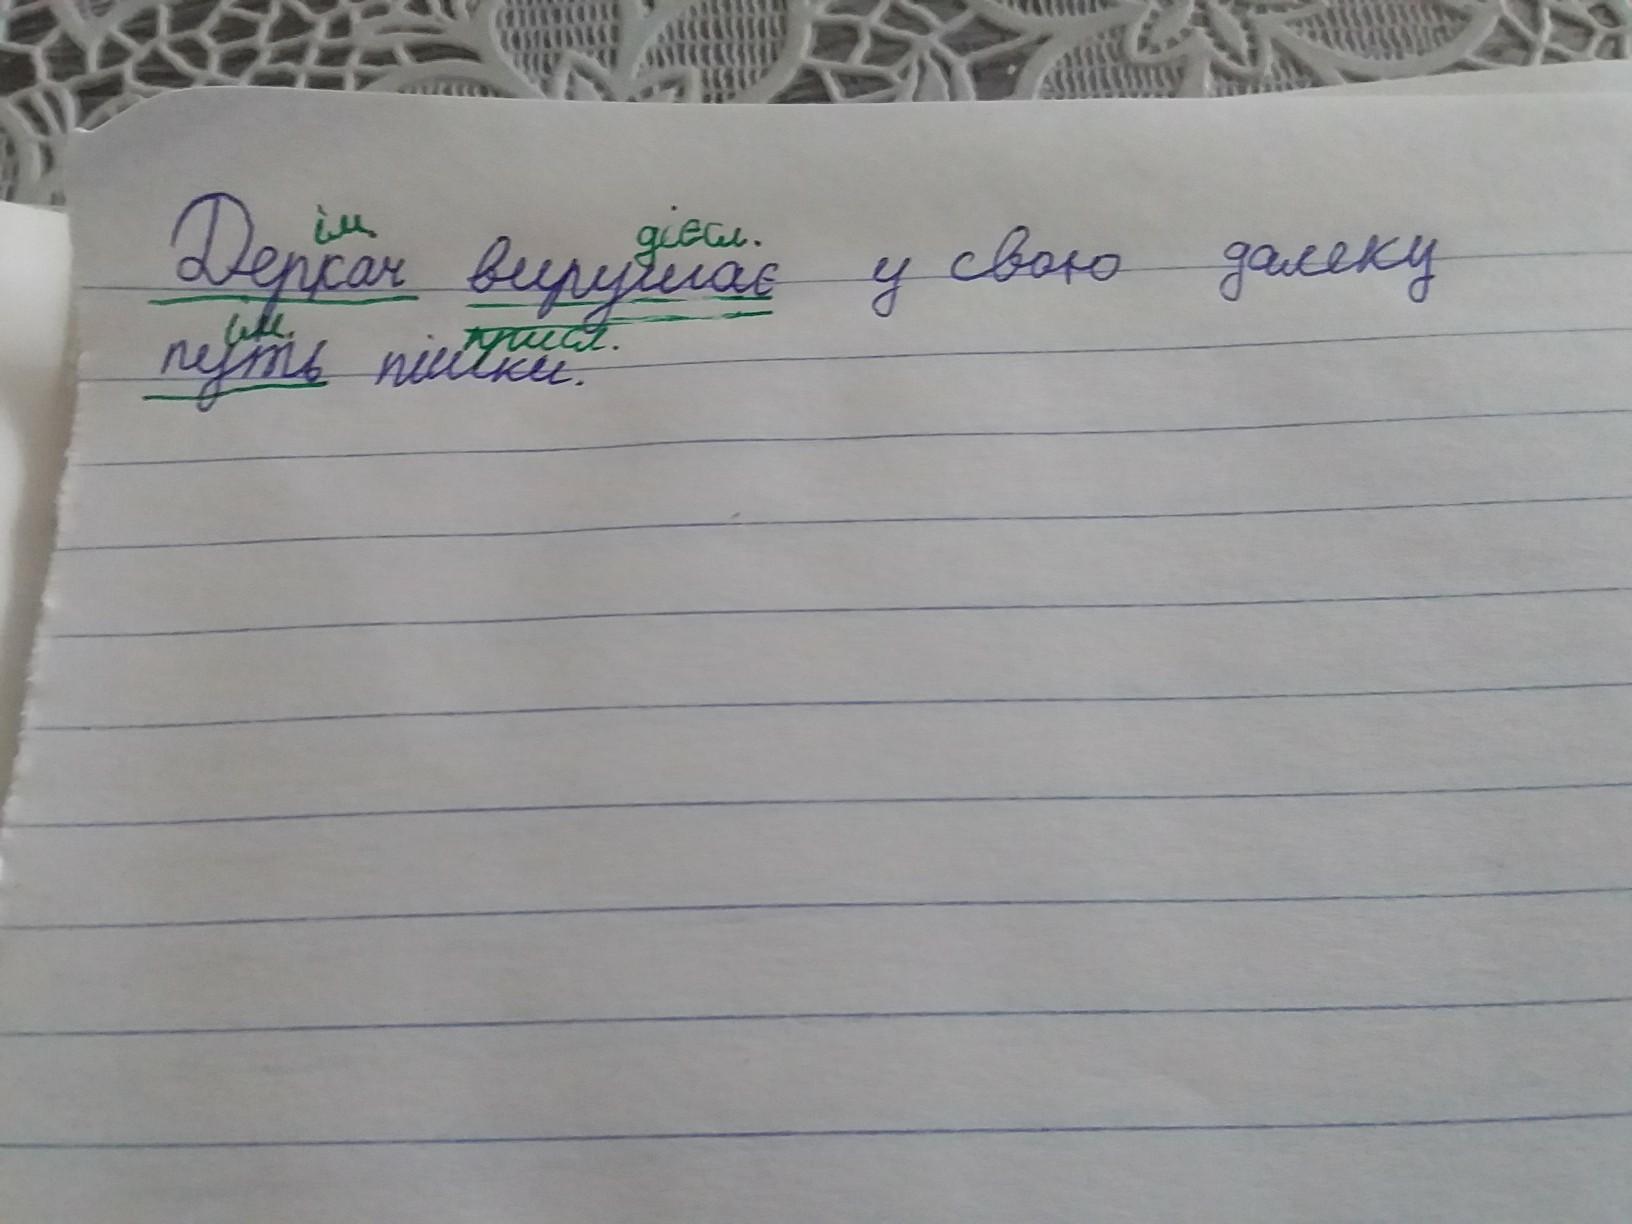 ім. дієсл.
Деркач вирушає у свою далеку
ім. присл.
путь пішки.